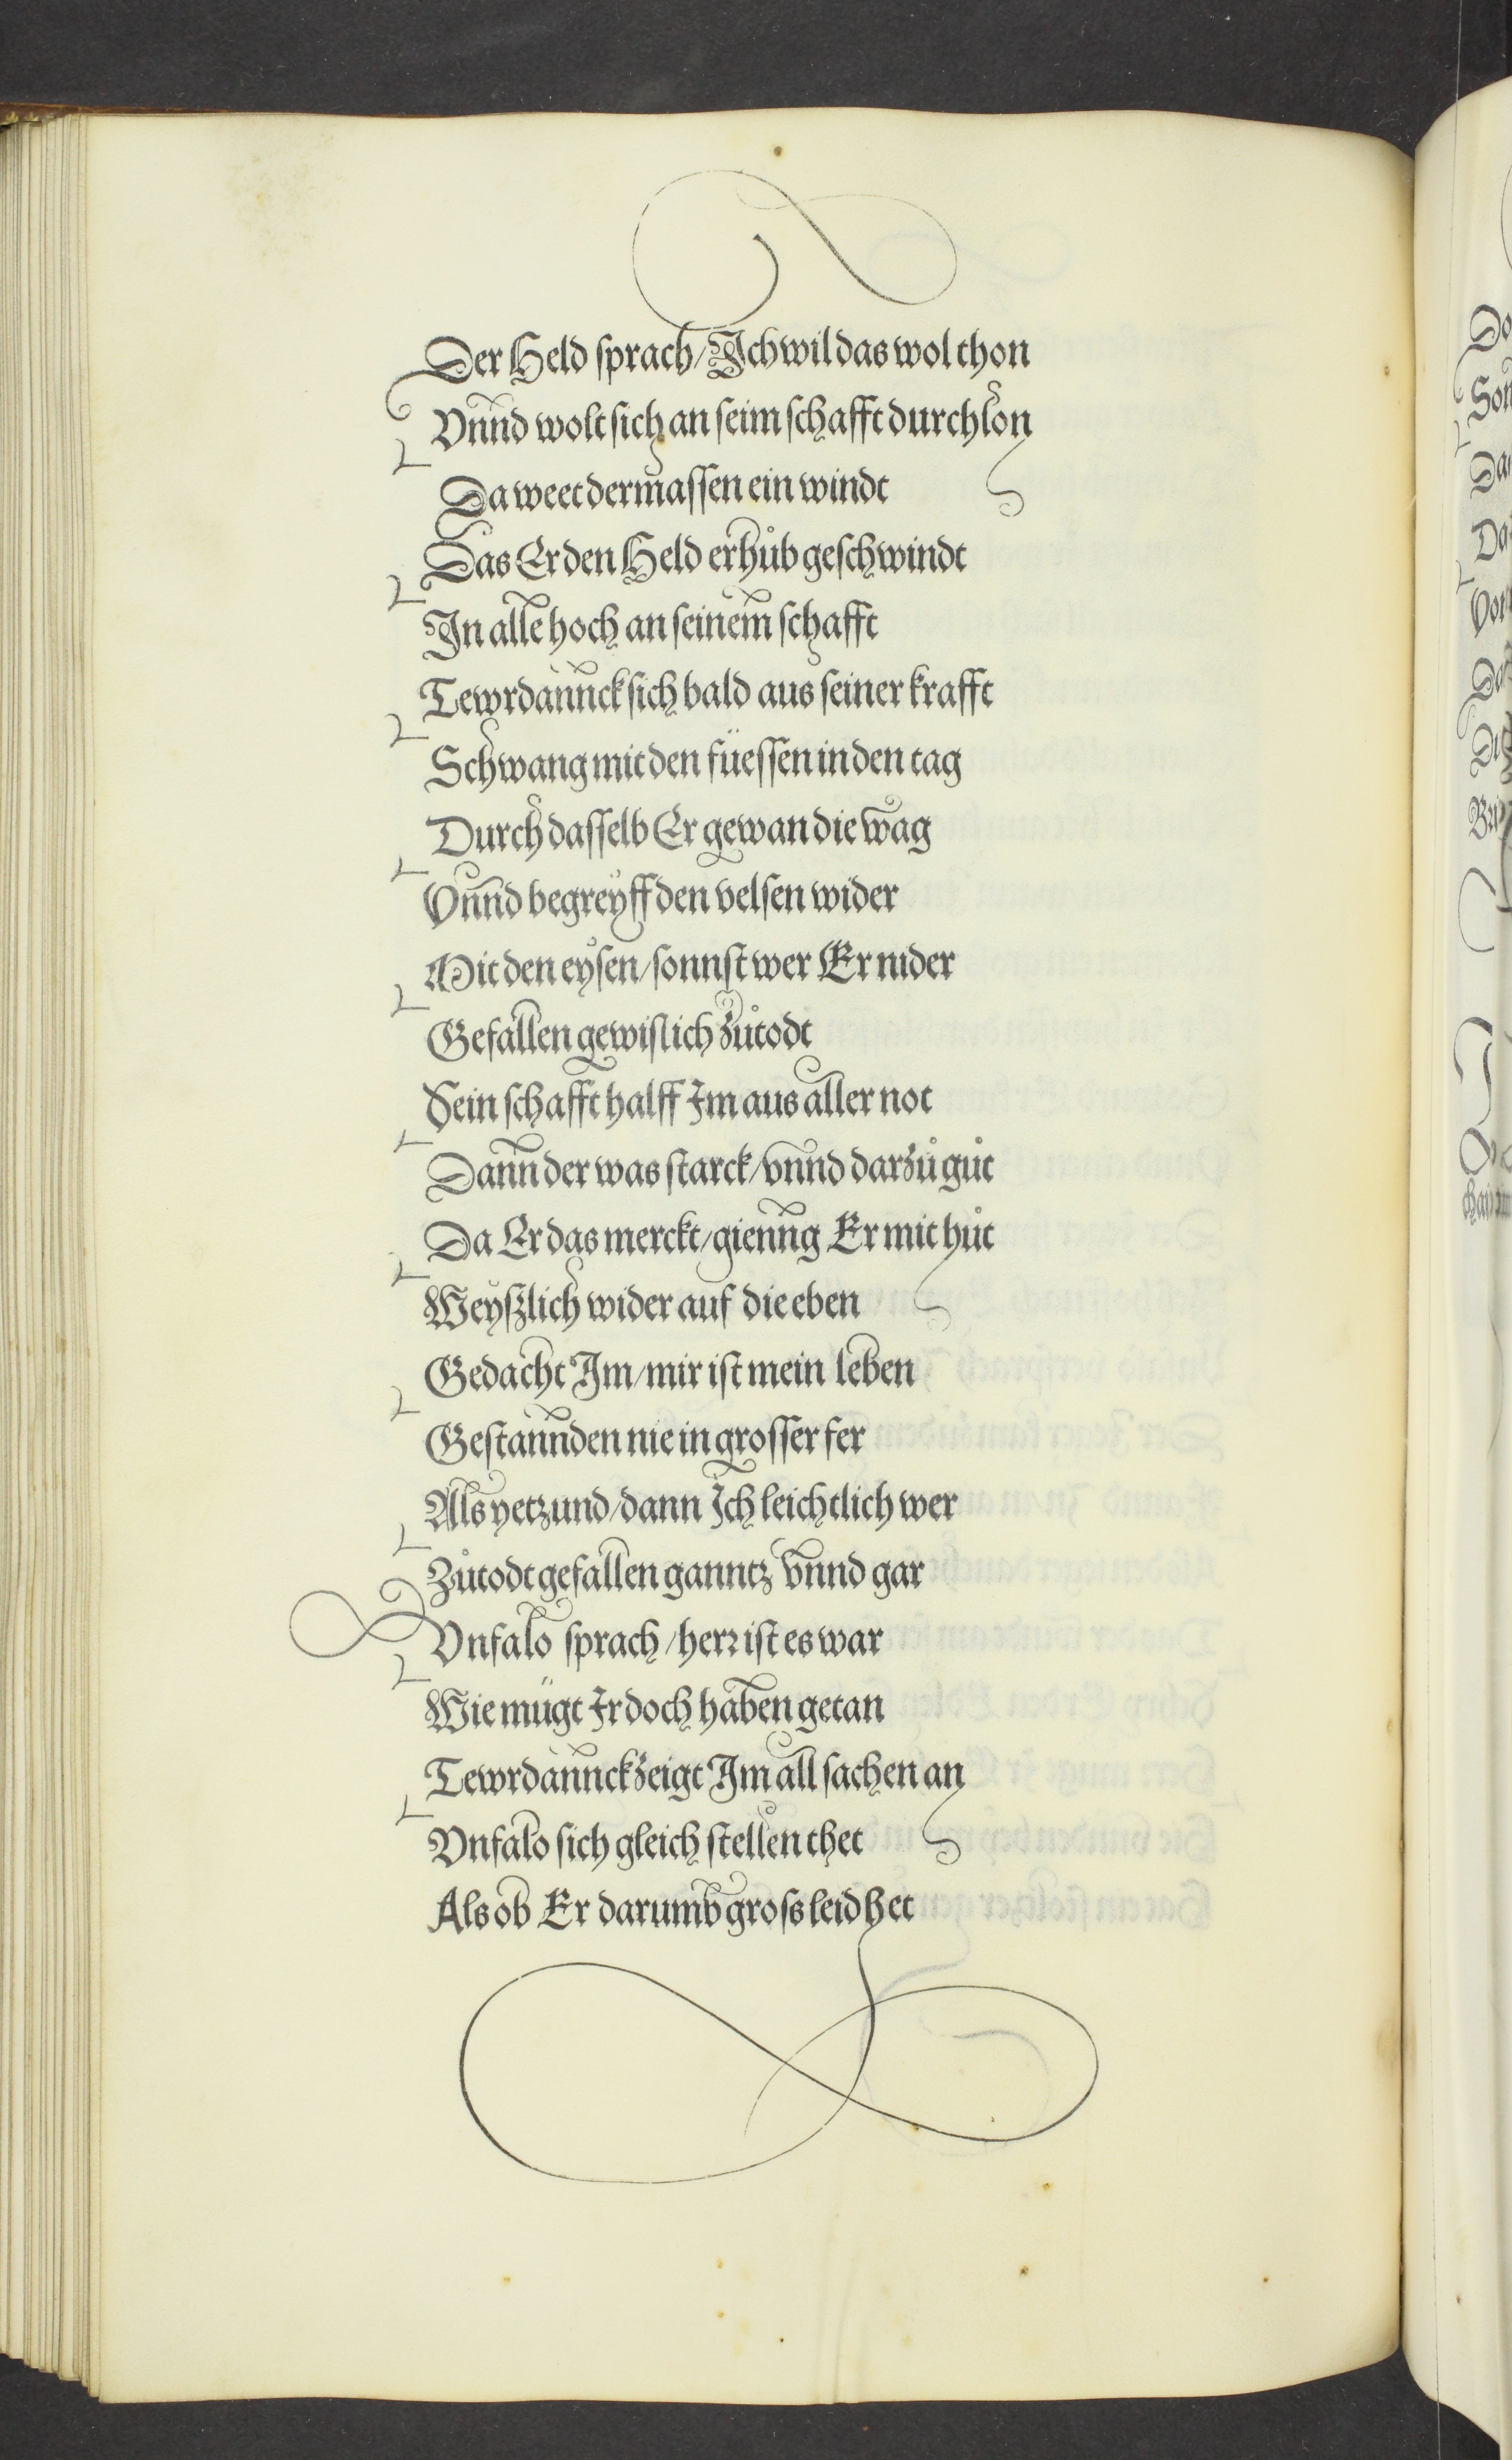 Der Held sprach/Ich wil das wol thon
Vnnd wolt sich an seim schafft durchlon
Da weet dermassen ein windt
Das Er den Held erhůb geschwindt
In alle hoch an seinem schafft
Tewrdannck sich bald aus seiner krafft
Schwang mit den füessen in den tag
Durch dasselb Er gewan die wag
Vnnd begreyff den velsen wider
Mit den eysen/sonnst wer Er nider
Gefallen gewislich zůtodt
Sein schafft halff Im aus aller not
Dann der was starck/vnnd darzů gůt
Da Er das merckt/gienng Er mit hůt
Weyßlich wider auf die eben
Gedacht Im/mir ist mein leben
Gestannden nie in grosser fer
Als yetzund/dann Ich leichtlich wer
Zůtodt gefallen ganntz vnnd gar
Vnfalo sprach/herr ist es war
Wie mügt Ir doch haben getan
Tewrdannck zeigt Im all sachen an
Vnfalo sich gleich stellen thet
Als ob Er darumb gross leid het